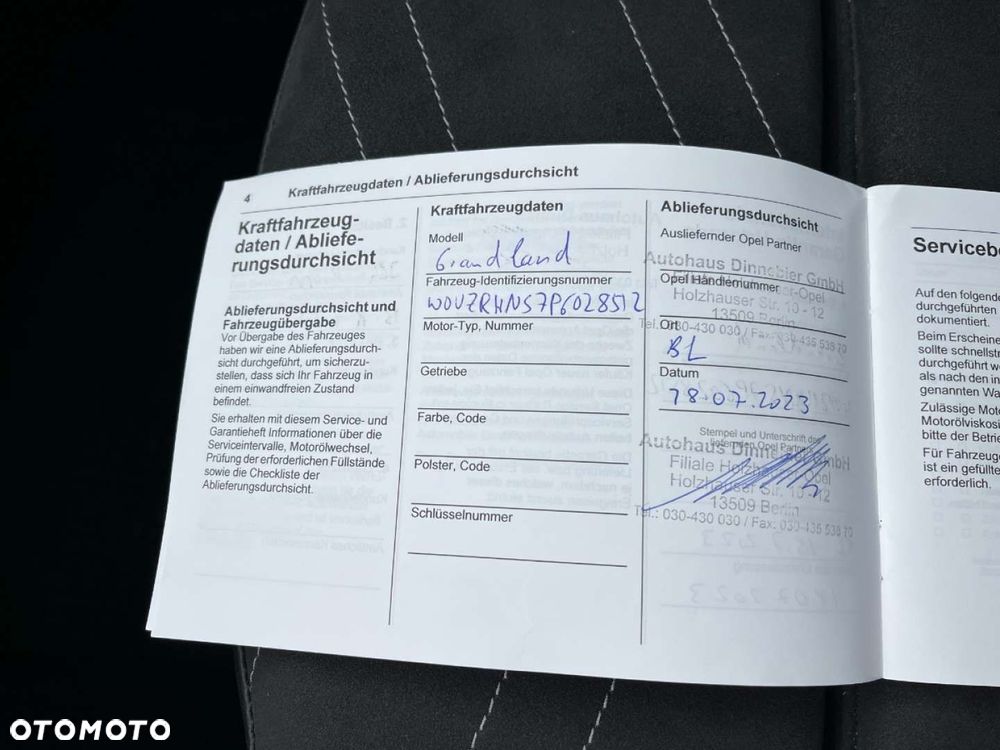 4
Kraftfahrzeugdaten / Ablieferungsdurchsicht
Kraftfahrzeug-
daten / Abliefe-
rungsdurchsicht
Ablieferungsdurchsicht und
Fahrzeugübergabe
Vor Übergabe des Fahrzeuges
haben wir eine Ablieferungsdurch-
sicht durchgeführt, um sicherzu-
stellen, dass sich Ihr Fahrzeug in
einem einwandfreien Zustand
befindet.
Sie erhalten mit diesem Service- und
Garantieheft Informationen über die
Serviceintervalle, Motorölwechsel,
Prüfung der erforderlichen Füllstände
sowie die Checkliste der
Ablieferungsdurchsicht.
Kraftfahrzeugdaten
Modell
Grandland
Fahrzeug-Identifizierungsnummer
W0VZRHNS7P6028512
Motor-Typ, Nummer
Getriebe
Farbe, Code
Polster, Code
Schlüsselnummer
Ablieferungsdurchsicht
Ausliefernder Opel Partner
Autohaus Dinnebier GmbH
Opel Händlernummer
Holzhauser Str. 10 - 12
13509 Berlin
Tel.: 030-430 030 / Fax: 030-435 538 70
Ort
BL
Datum
18.07.2023
Stempel und Unterschrift des
liefernden Opel Partners
Autohaus Dinnebier GmbH
Filiale Holzhauser-Opel
Holzhauser Str. 10 - 12
13509 Berlin
Tel.: 030-430 030 / Fax: 030-435 538 70
Serviceb
Auf den folgende
durchgeführten
dokumentiert.
Beim Erscheine
sollte schnellst
durchgeführt w
als nach den in
genannten Wa
Zulässige Mot
Motorölviskosi
bitte der Betrie
Für Fahrzeuge
ist ein gefüllte
erforderlich.
OTOMOTO